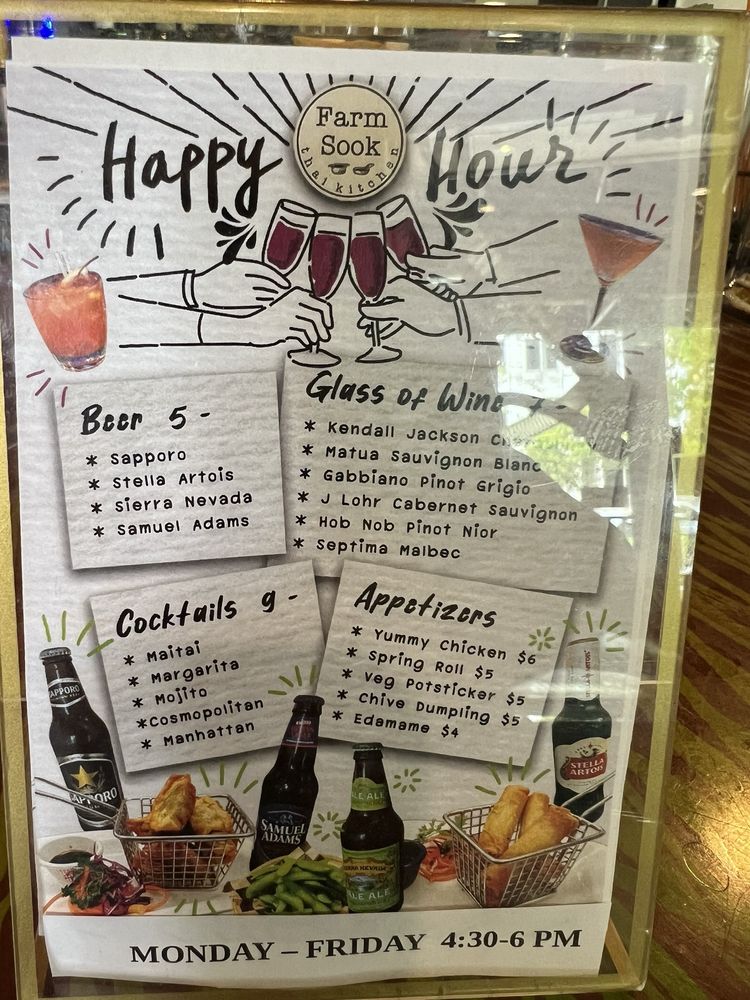 Happy Hour
Farm
Sook
thai kitchen
Beer 5 -
* Sapporo
* Stella Artois
* Sierra Nevada
* Samuel Adams
Glass of Wine 7 -
* Kendall Jackson
* Matua Sauvignon Blanc
* Gabbiano Pinot Grigio
* J Lohr Cabernet Sauvignon
* Hob Nob Pinot Nior
* Septima Malbec
Cocktails 9 -
* Maitai
* Margarita
* Mojito
*Cosmopolitan
* Manhattan
Appetizers
* Yummy Chicken $6
* Spring Roll $5
* Veg Potsticker $5
* Chive Dumpling $5
* Edamame $4
SAPPORO
SAPPORO
SAMUEL
ADAMS
ALE ALE
SIERRA NEVADA
PALE ALE
STELLA
ARTOIS
MONDAY – FRIDAY 4:30-6 PM